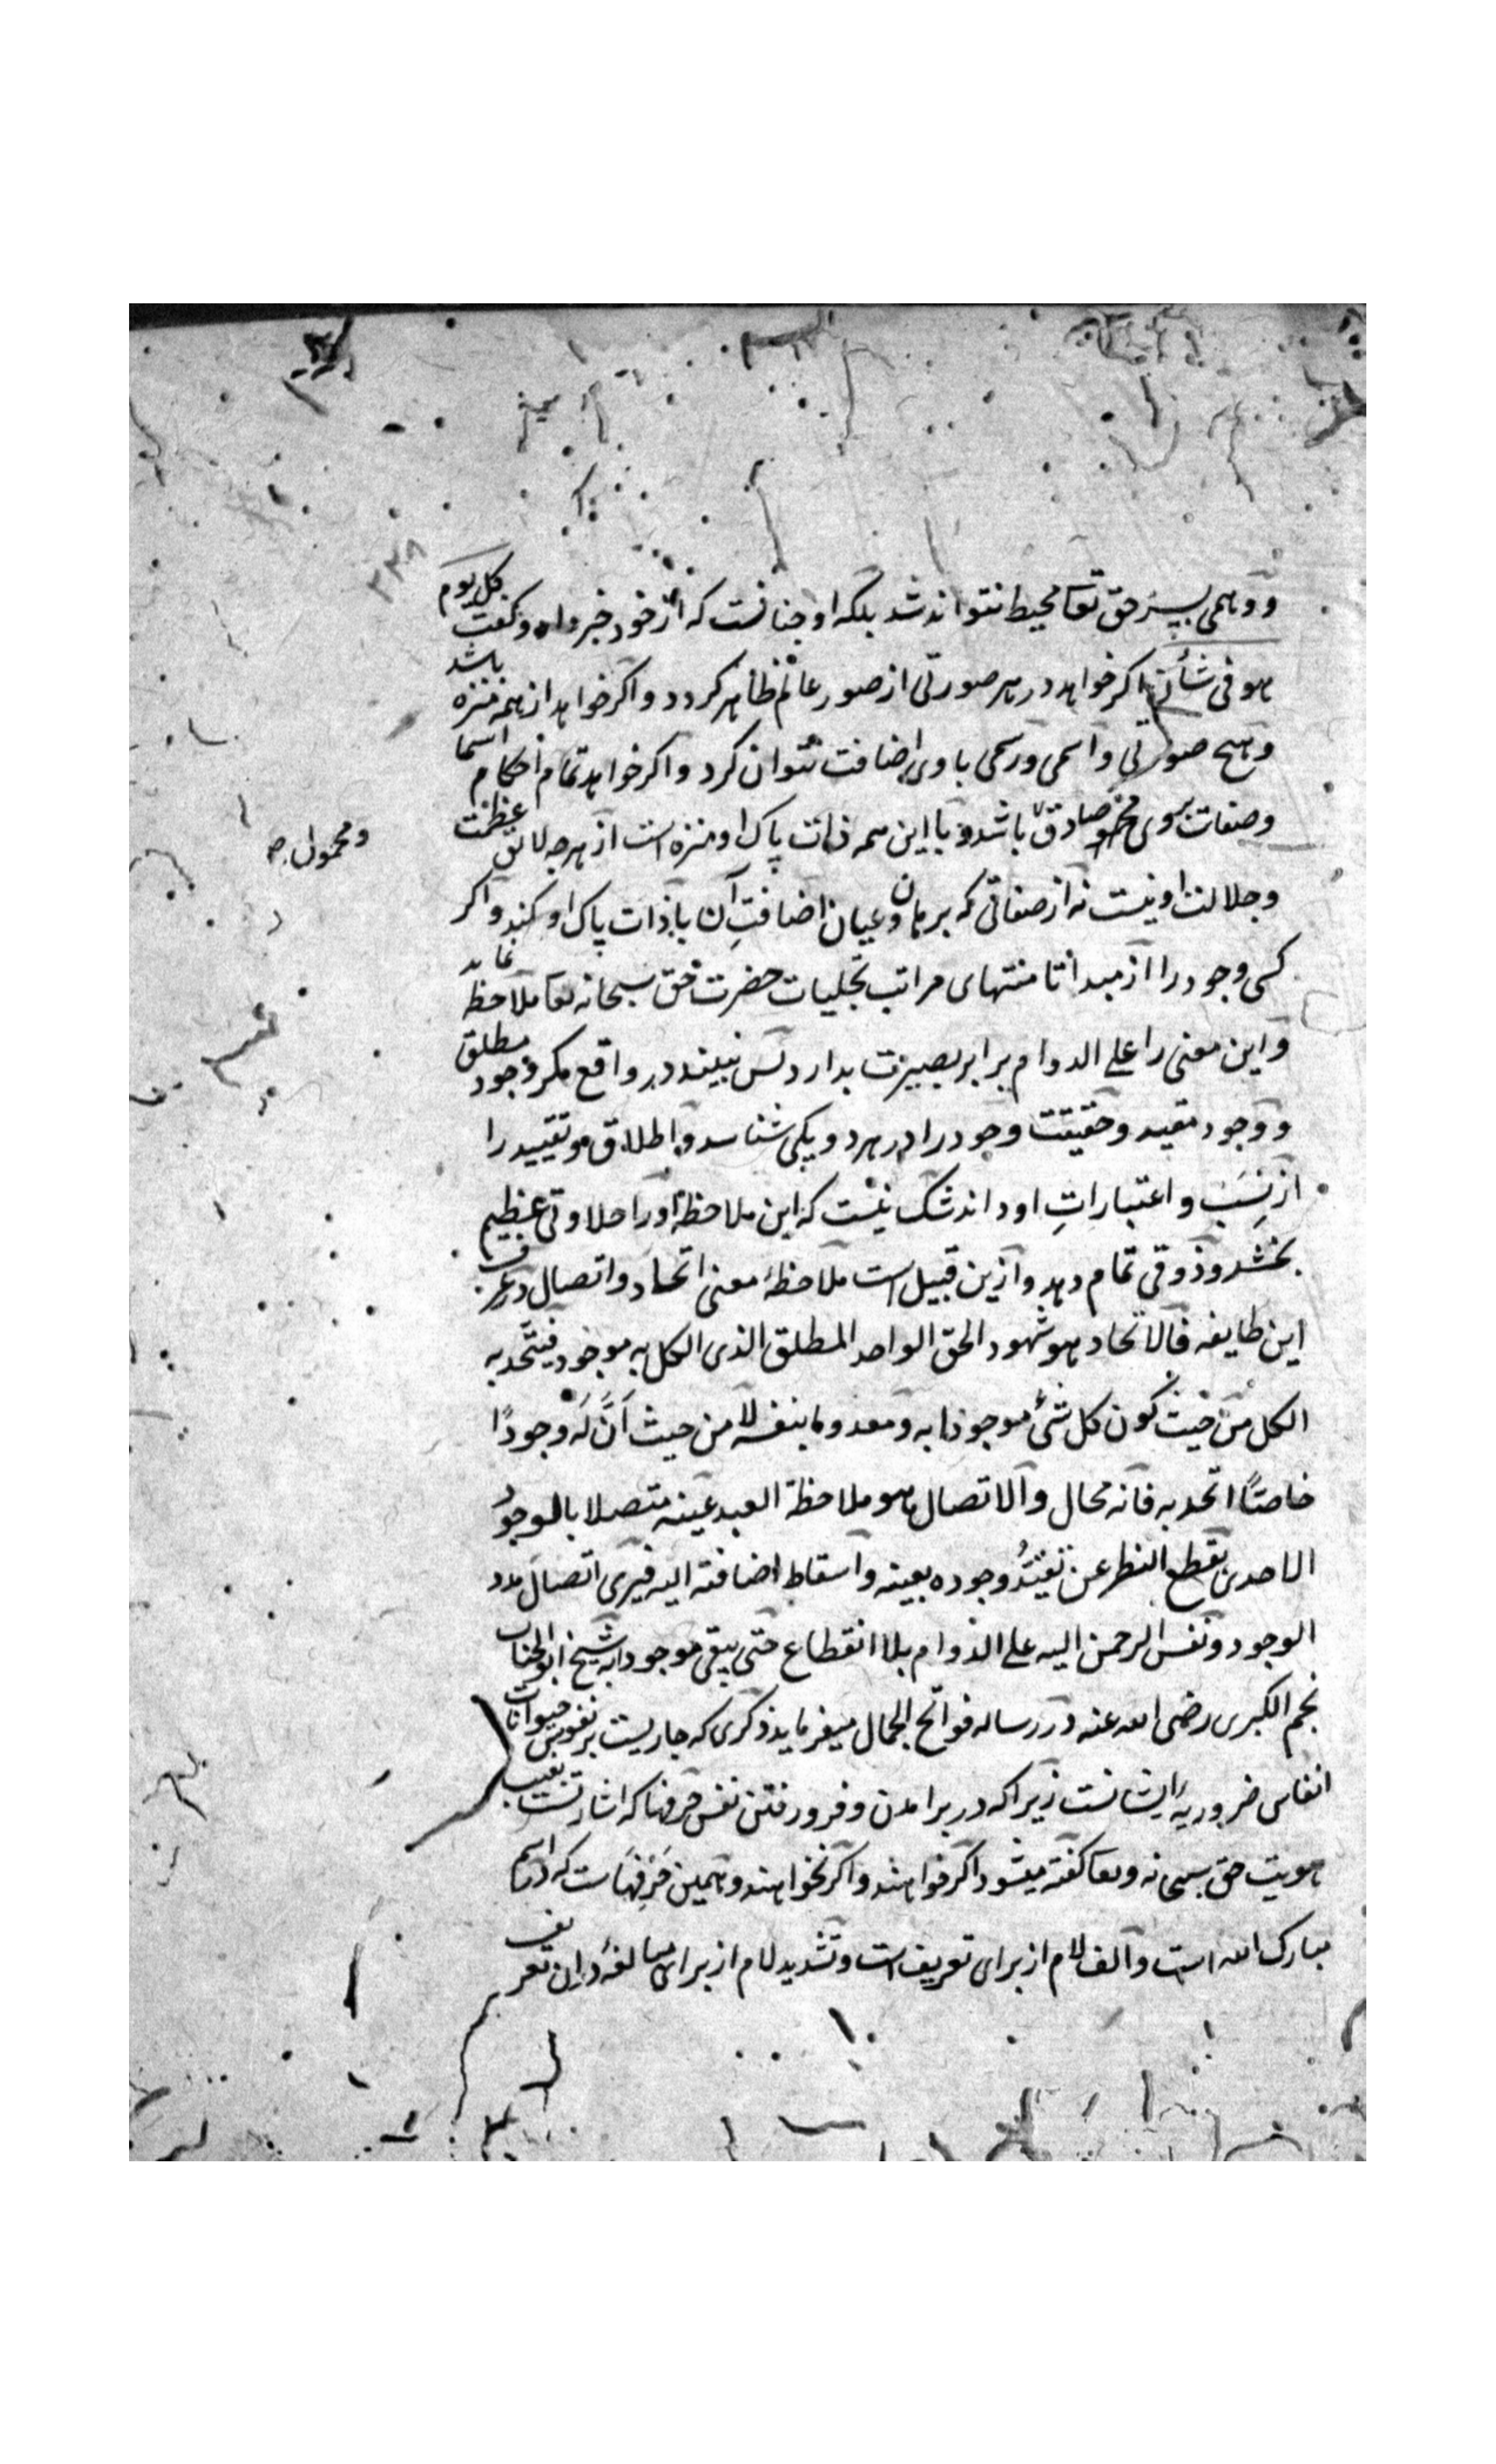 و وهمی بسر حق تعا محیط نتواند شد بلکه او چنانست که از خود خبر داد و گفت کل یوم
هو فی شأن اکر خواهد در هر صورتی از صور عالم ظاهر کردد و اکر خواهد از همه منزه باشد
و هیچ صورتی و اسمی و رسمی با وی اضافت نتوان کرد و اکر خواهد تمام احکام اسما
و صفات بروی صادق باشد و با این همه ذات پاک او منزه است از هرچه لایق عظمت
و محمول صح
و جلالت او نیست نه از صفاتی که برهان و عیان اضافتِ آن با ذات پاک او کند و اکر
کسی وجود را از مبدا تا منتهای مراتب تجلیات حضرت حق سبحانه تعا ملاحظه نماید
و این معنی را علی الدوام برابر بصیرت بدارد پس نبیند در واقع مکر وجود مطلق
و وجود مقید و حقیقت وجود را در هر دو یکی شناسد و اطلاق و تقیید را
از نِسَب و اعتباراتِ او داند شک نیست که این ملاحظه او را حلاوتی عظیم
بخشد و ذوقی تمام دهد و ازین قبیل است ملاحظهٔ معنی اتحاد و اتصال در عرف
این طایفه فالاتحاد هو شهود الحق الواحد المطلق الذی الکل به موجود فیتّحد به
الکل من حیث کون کل شیٔ موجودا به و معدوما بنفسه لا من حیث اَنَّ لَه وجودًا
خاصًّا اتحد به فانه محال و الاتصال هو ملاحظة العبد عینه متصلا بالوجود
الاحدی بقطع النظر عن تقیّد وجوده بعینه و اسقاط اضافته الیه فیری اتصال مدد
الوجود و نفس الرحمن الیه علی الدوام بلا انقطاع حتی یبقی موجودا به شیخ ابو الجناب
نجم الکبری رضی الله عنه در رساله فواتح الجمال میفرماید ذکری که جاریست بر نفوس حیوانات
انفاس ضروریهٔ ایشانست زیرا که در برامدن و فرو رفتن نفس حرف ها که اشارتست بغیب
هویت حق سبحانه و تعا گفته میشود اکر خواهند و اکر نخواهند و همین حَرْف ها است که در اسم
مبارک الله است و الف لام از برای تعریف است و تشدید لام از برای مبالغه در ان تعریف
۲۳۸